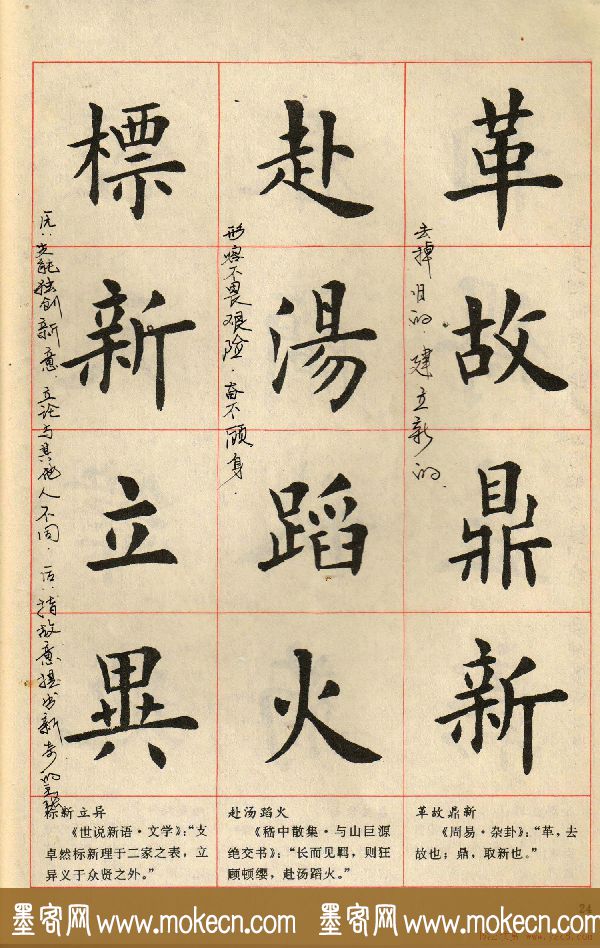 革故鼎新
去掉旧的.建立新的.
赴湯蹈火
形容不畏艰险.奋不顾身.
標新立異
立能独创新意.立论与其他人不同.后:指故意提出新奇的
革故鼎新
《周易·杂卦》:“革,去
故也;鼎,取新也。”
赴汤蹈火
《嵇中散集·与山巨源
绝交书》:“长而见羁,则狂
顾顿缨,赴汤蹈火。”
标新立异
《世说新语·文学》:“支
卓然标新理于二家之表,立
异义于众贤之外。”
24
墨客网 www.mokecn.com 墨客网 www.mokecn.com